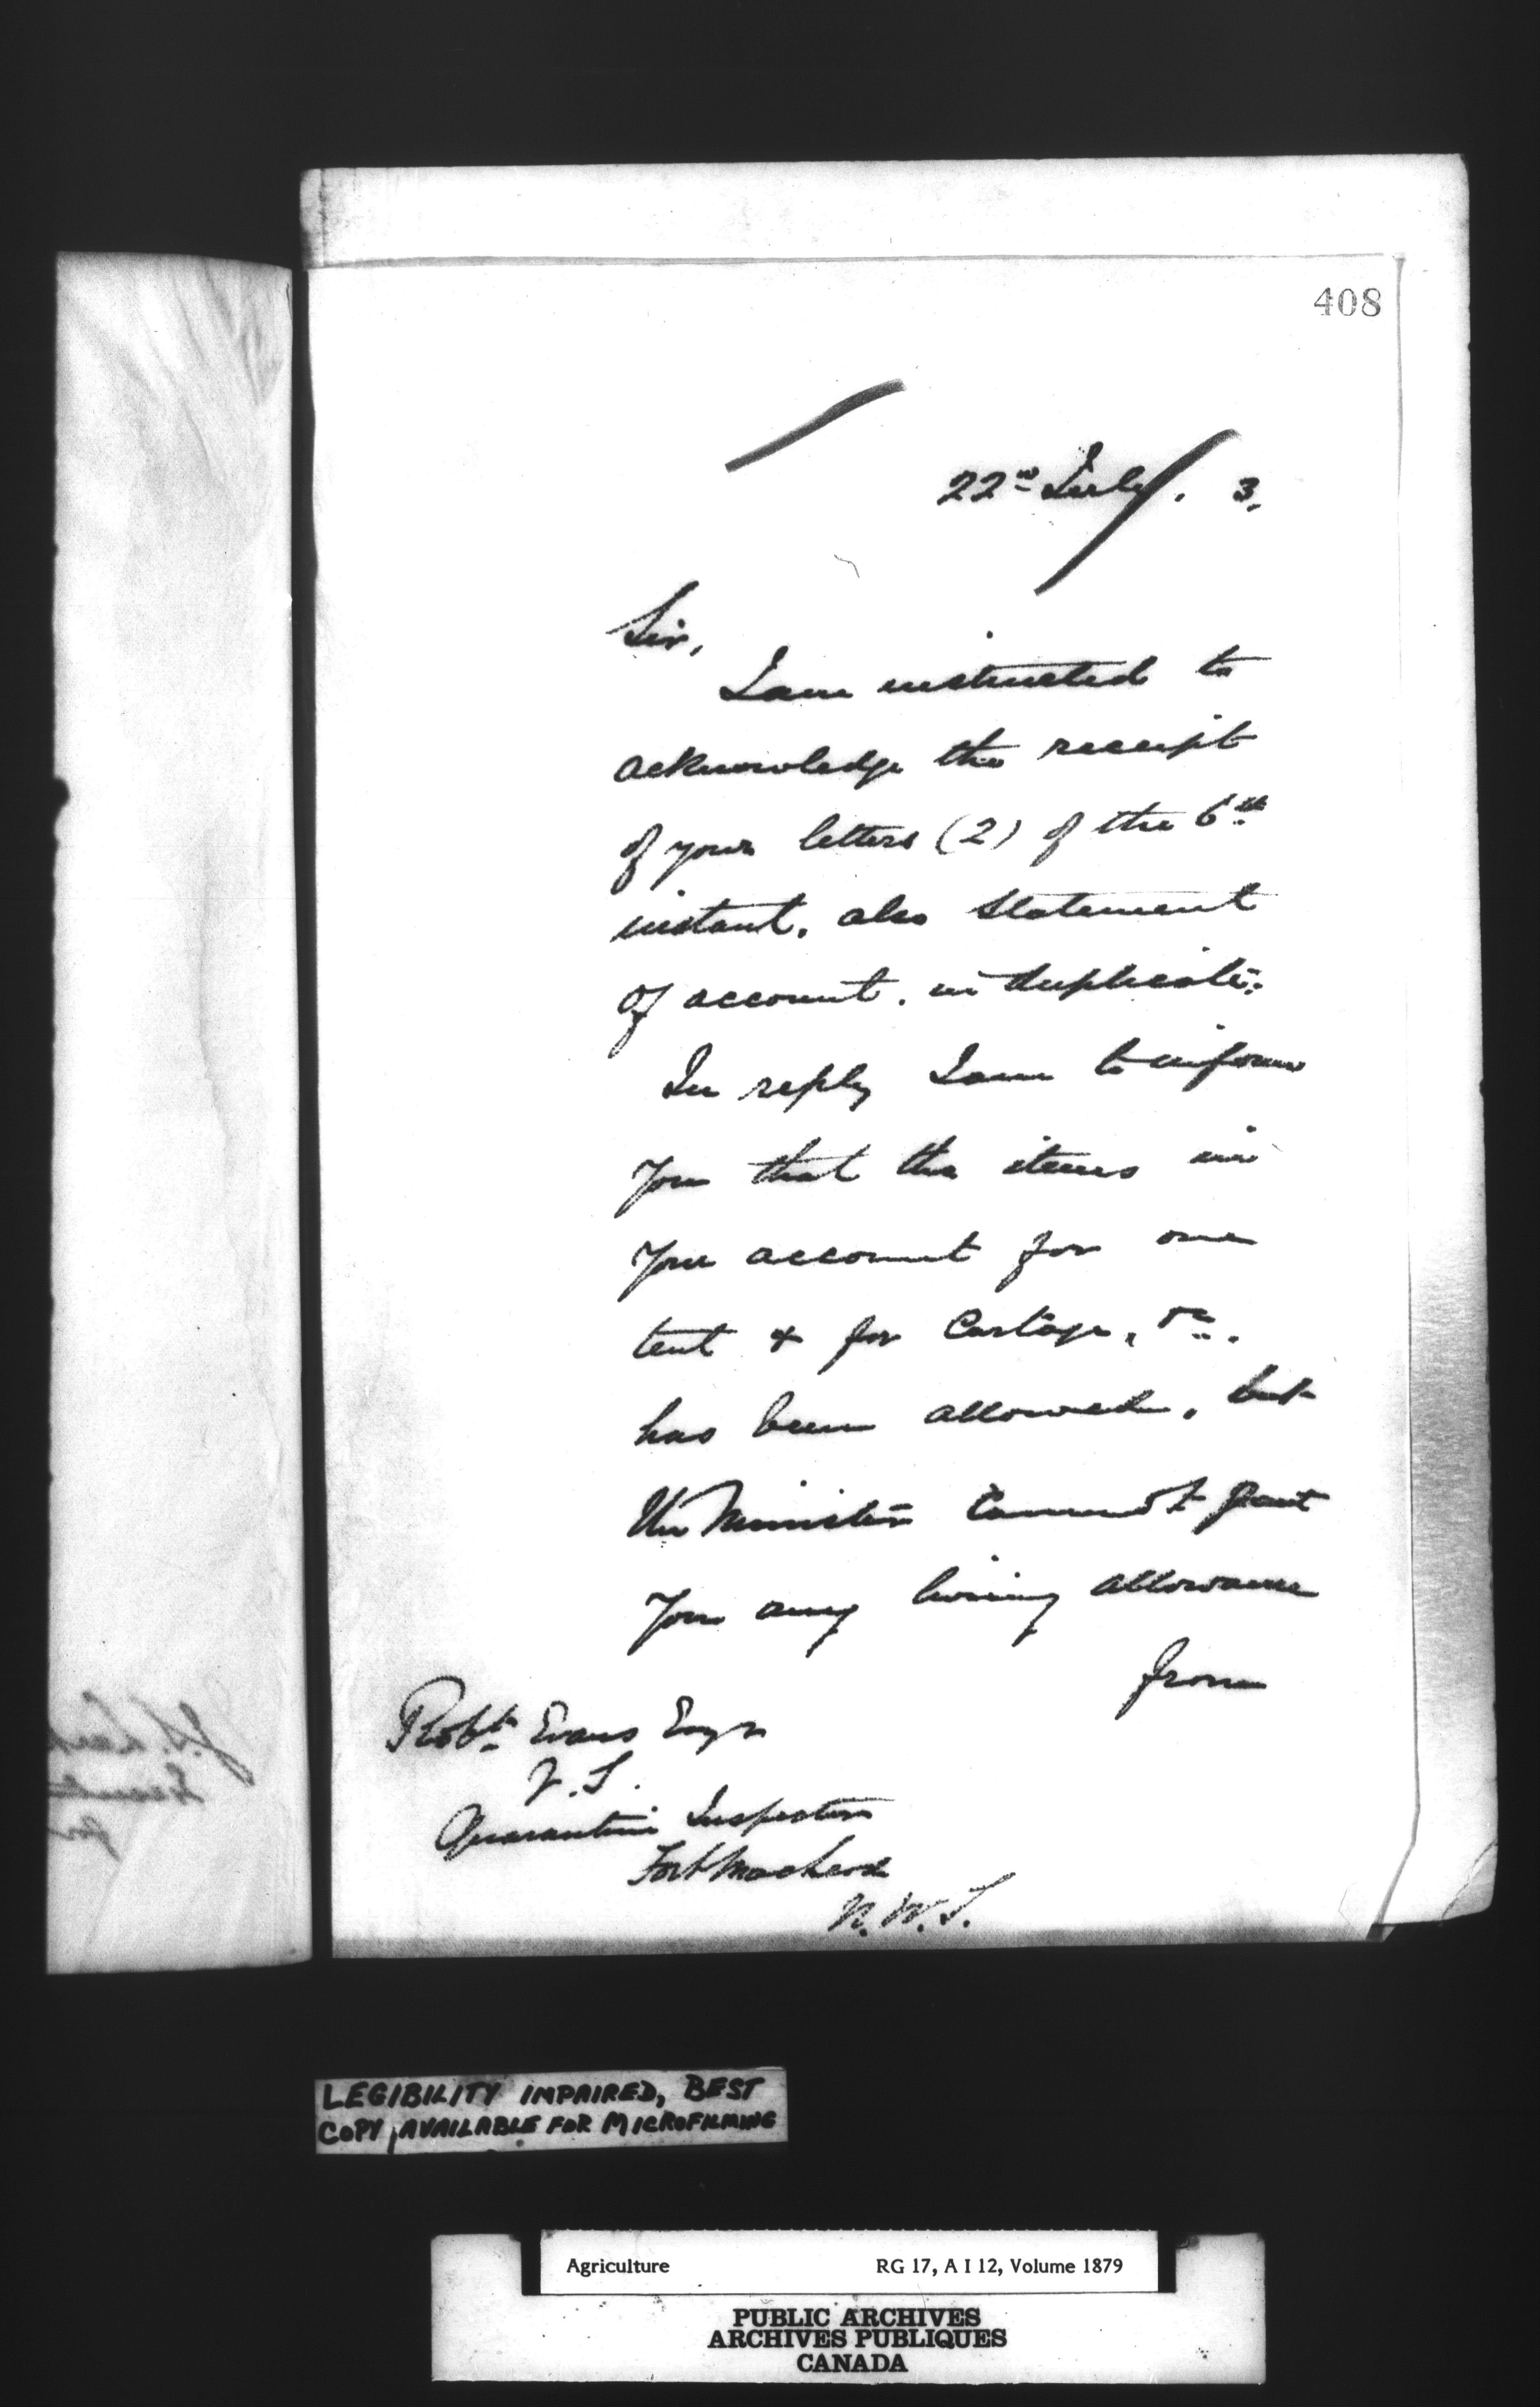 408
22nd July. 3.
Sir,
I am instructed to
acknowledge the receipt
of your letters (2) of the 6th
instant. also Statement
of account. in duplicate.
In reply I am to inform
you that the items in
your account for one
tent & for Cartage, &c.
has been allowed, but
the Minister cannot grant
you any living allowance
from
Robt Evans Esqr
V.S.
Quarantine Inspector
Fort MacLeod
N.W.T.
LEGIBILITY IMPAIRED, BEST
COPY AVAILABLE FOR MICROFILMING
Agriculture RG 17, A I 12, Volume 1879
PUBLIC ARCHIVES
ARCHIVES PUBLIQUES
CANADA